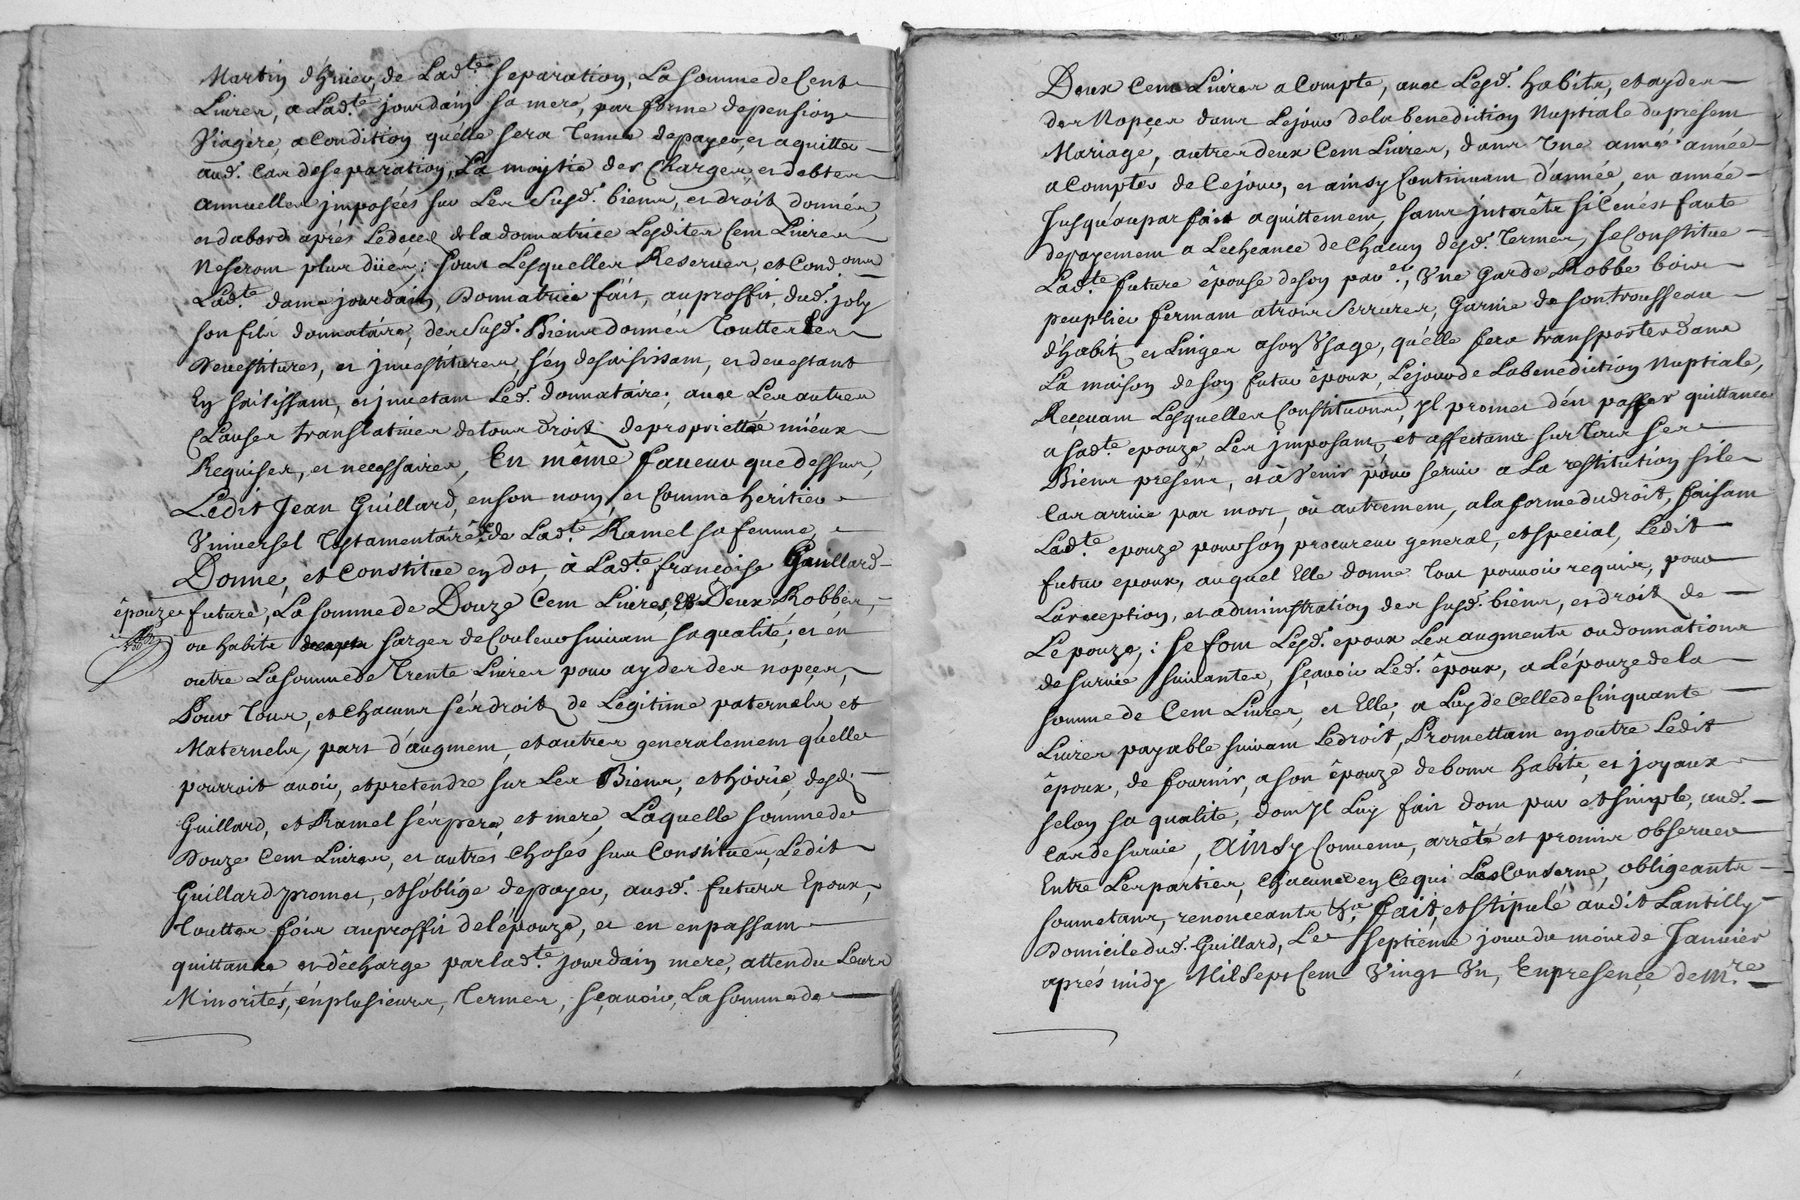 Martin d'hiver, de Lad.te separation, La somme de Cent
Livres, a Lad.te jourdain sa mere, par forme de pension
Viagere, a Condition qu'elle sera Tenue de payer, et aquitter
aud. Cas de separation, La moytié des Charges et debtes
annuelles jmposées sur Les Susd. biens, et droits donnés,
et d'abord aprés Le decez de la donnatrice Lesdites Cent Livres
Ne seront plus düés; sous Lesquelles Reserves, et Cond.ons
Lad.te dame jourdain, Donnatrice fait, au proffit dud. joly
son fils donnataire, des Susd. Biens donnés Touttes Les
Devestitures, et jnvestitures s'en desaisissant, et devestant
En saisissant, et jnvetant Led. donnataire, avec Les autres
Clauses translatives de tous droits de proprietté mieux
Requises, et necessaires, En même faveur que dessus,
Ledit Jean Guillard, en son nom, et Comme heritier
Vniversel Testamentaire de Lad.te Ramel sa femme
Donne, et Constitue en dot, à Lad.te francoise Guillard
épouze future, La somme de Douze Cent Livres, Et Deux Robbes,
ou habits sarges de Couleur suivant sa qualité; et en
outre La somme de Trente Livres pour ayder des nopces,
Pour Tous, et Chacuns sés droits de Legitime paternels, et
Maternels, part d'augment, et autres generalement qu'elle
pourroit avoir, et pretendre sur Les Biens, et hoirie desd.
Guillard, et Ramel sés pere, et mere, Laquelle somme de
Douze Cent Livres, et autres choses sus Constituées, Ledit
Guillard promet, et s'oblige de payer, ausd. futurs Epoux,
Touttes fois au proffit de l'épouze, et en en passant
quittance et décharge par lad.te jourdain mere, attendu Leurs
Minorités, en plusieurs Termes, sçavoir, La somme de
Deux Cent Livres a Compte, avec Lesd. habits, et ayder
des Nopces dans Le jour de la benediction Nuptiale du present
Mariage, autres deux Cent Livres, dans Vne année année
a Compter de Ce jour, et ainsy Continuant d'année, en année
Jusqu'au parfait aquittement, sans jnterêts si Ce n'ést faute
de payement a L'echeance de Chacun desd. Termes, se Constitue
Lad.te future épouse de son pav.er, Vne Garde Robbe bois
peuplier fermant a trois Serrures, Garnie de son trousseau
d'habits et Linges a son Vsage, qu'elle fera transporter dans
La maison de son futur époux, Le jour de La benediction Nuptiale,
Recevant Lesquelles Constitutions, jl promet d'en passer quittance
a sad.te epouze Les jmposant, et affectant sur Tous ses
Biens présens, et à Venir pour servir a La restitution si le
Cas arrive par mort, où autrement, a la forme du droit, faisant
Lad.te epouze pour son procureur general, et special, Ledit
futur epoux, auquel Elle donne Tout pouvoir requis, pour
La reception, et administration des susd. biens, et droits de
L'épouze; se font Lesd. epoux Les augments ou donnations
de survie suivantes, sçavoir Led. époux, a L'épouze de la
somme de Cent Livres, et Elle, a Luy de Celle de Cinquante
Livres payable suivant Le droit, Promettant en outre Ledit
époux, de fournir, a son épouze de bons habits, et joyaux
selon sa qualite, dont jl Luy fait dom pur et simple, aud.
Cas de survie, Ainsy Convenu, arrêté et promis observer
Entre Les parties, Chacune en Ce qui Les Conserne, obligeants
soumetants, renonceants &a, fait, et stipulé audit Lantilly
Domicile dud. Guillard, Le septieme jour du mois de Janvier
aprés midy Mil Sept Cent Vingt Vn, En presence de m.re